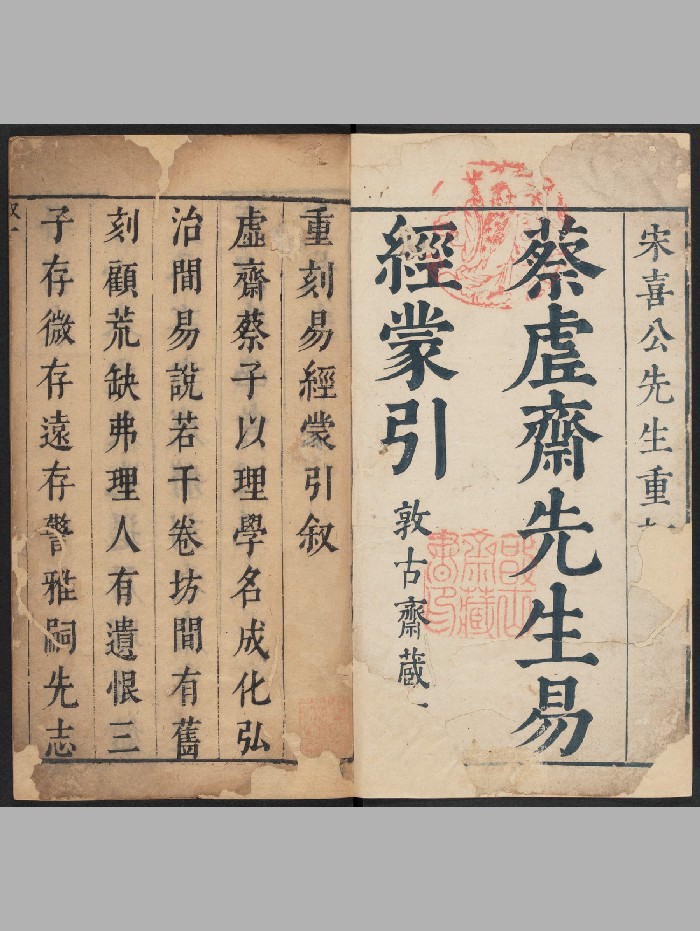 宋喜公先生重
蔡虛齋先生易
經蒙引
敦古齋藏
重刻易經蒙引叙
虛齋蔡子以理學名成化弘
治間易說若干卷坊間有舊
刻顧荒缺弗理人有遺恨三
子存微存遠存警雅嗣先志